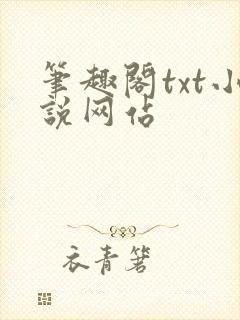 筆趣閣txt小
說网佔
衣青箬